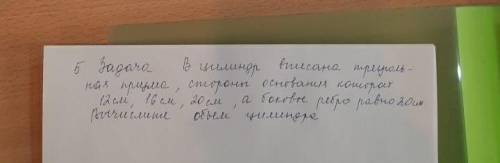 5 Задача В цилиндр вписана треуголь-
ная призма, стороны основания которой
12см, 16см, 20см, а боковое ребро равно 20см
Вычислите объем цилиндра